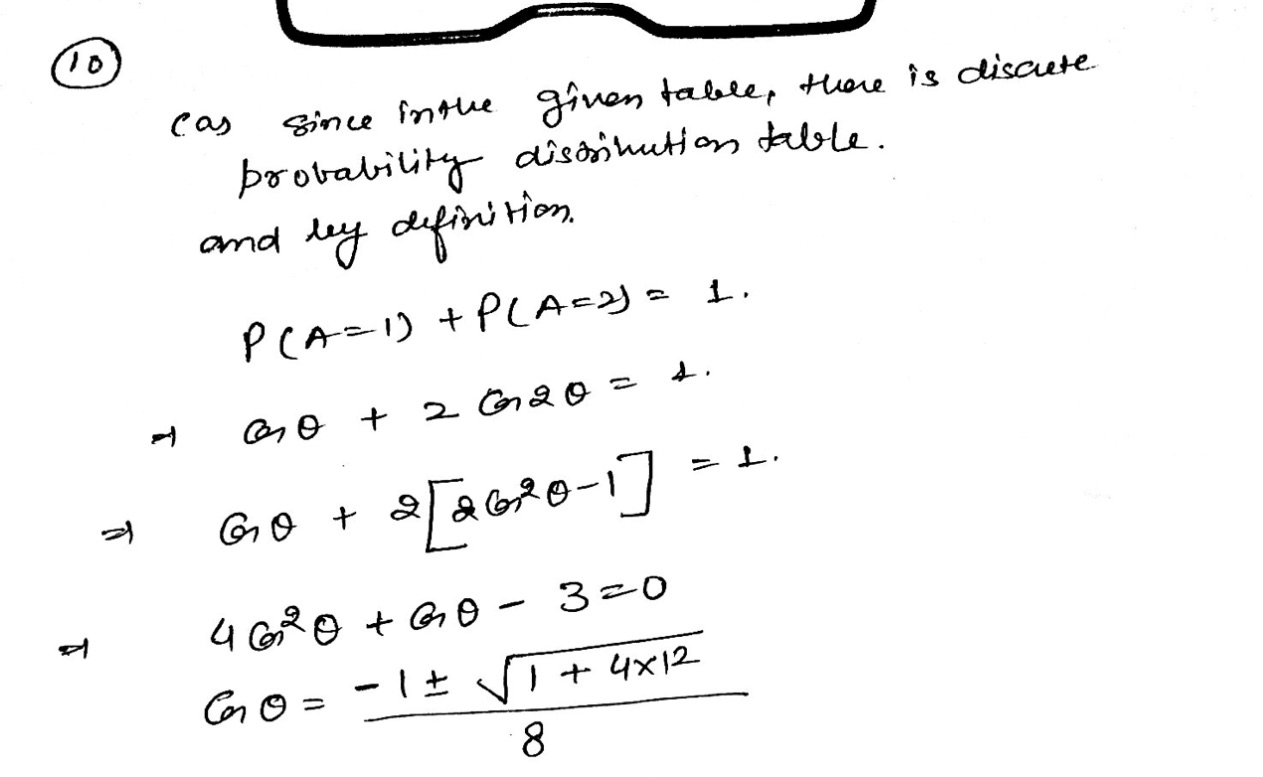 10
(a) since in the given table, there is discrete
probability distribution table.
and by definition.
P(A=1) + P(A=2) = 1.
⇒ cos θ + 2 cos 2θ = 1.
⇒ cos θ + 2[2cos²θ-1] = 1.
⇒ 4 cos²θ + cos θ - 3=0
cos θ = (-1 ± √(1 + 4×12)) / 8